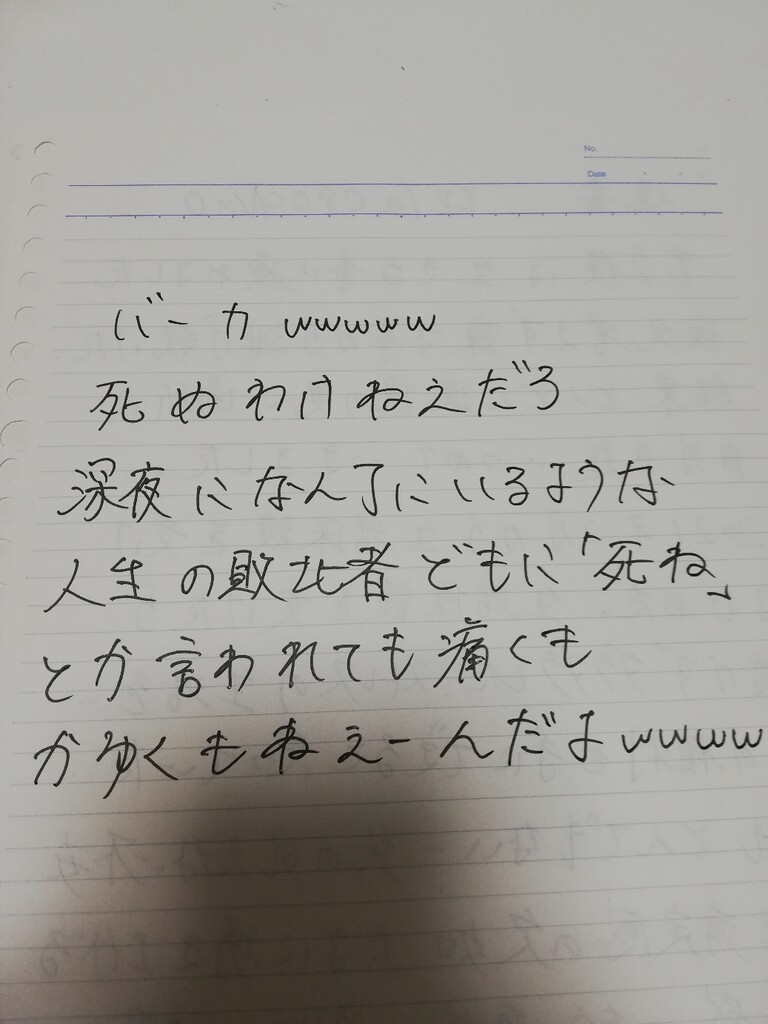 No.
Date
バーカwwwww
死ぬわけねえだろ
深夜になんJにいるような
人生の敗北者どもに「死ね」
とか言われても痛くも
かゆくもねえーんだよwwww